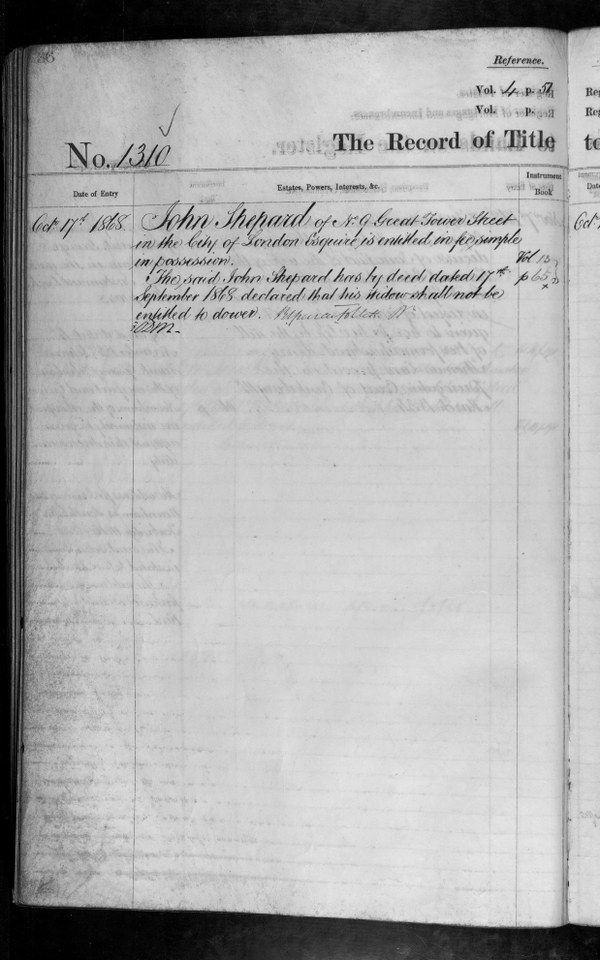 Reference.
Vol. 4 p. 51
Vol. p.
No. 1310
The Record of Title
Date of Entry
Estates, Powers, Interests, &c.
Instrument Book
Octr 17th 1868
John Shepard of No. 9 Great Tower Street
in the City of London Esquire is entitled in fee simple
in possession.
Vol 13
The said John Shepard has by deed dated 17th
p 65
September 1868 declared that his widow shall not be
entitled to dower.